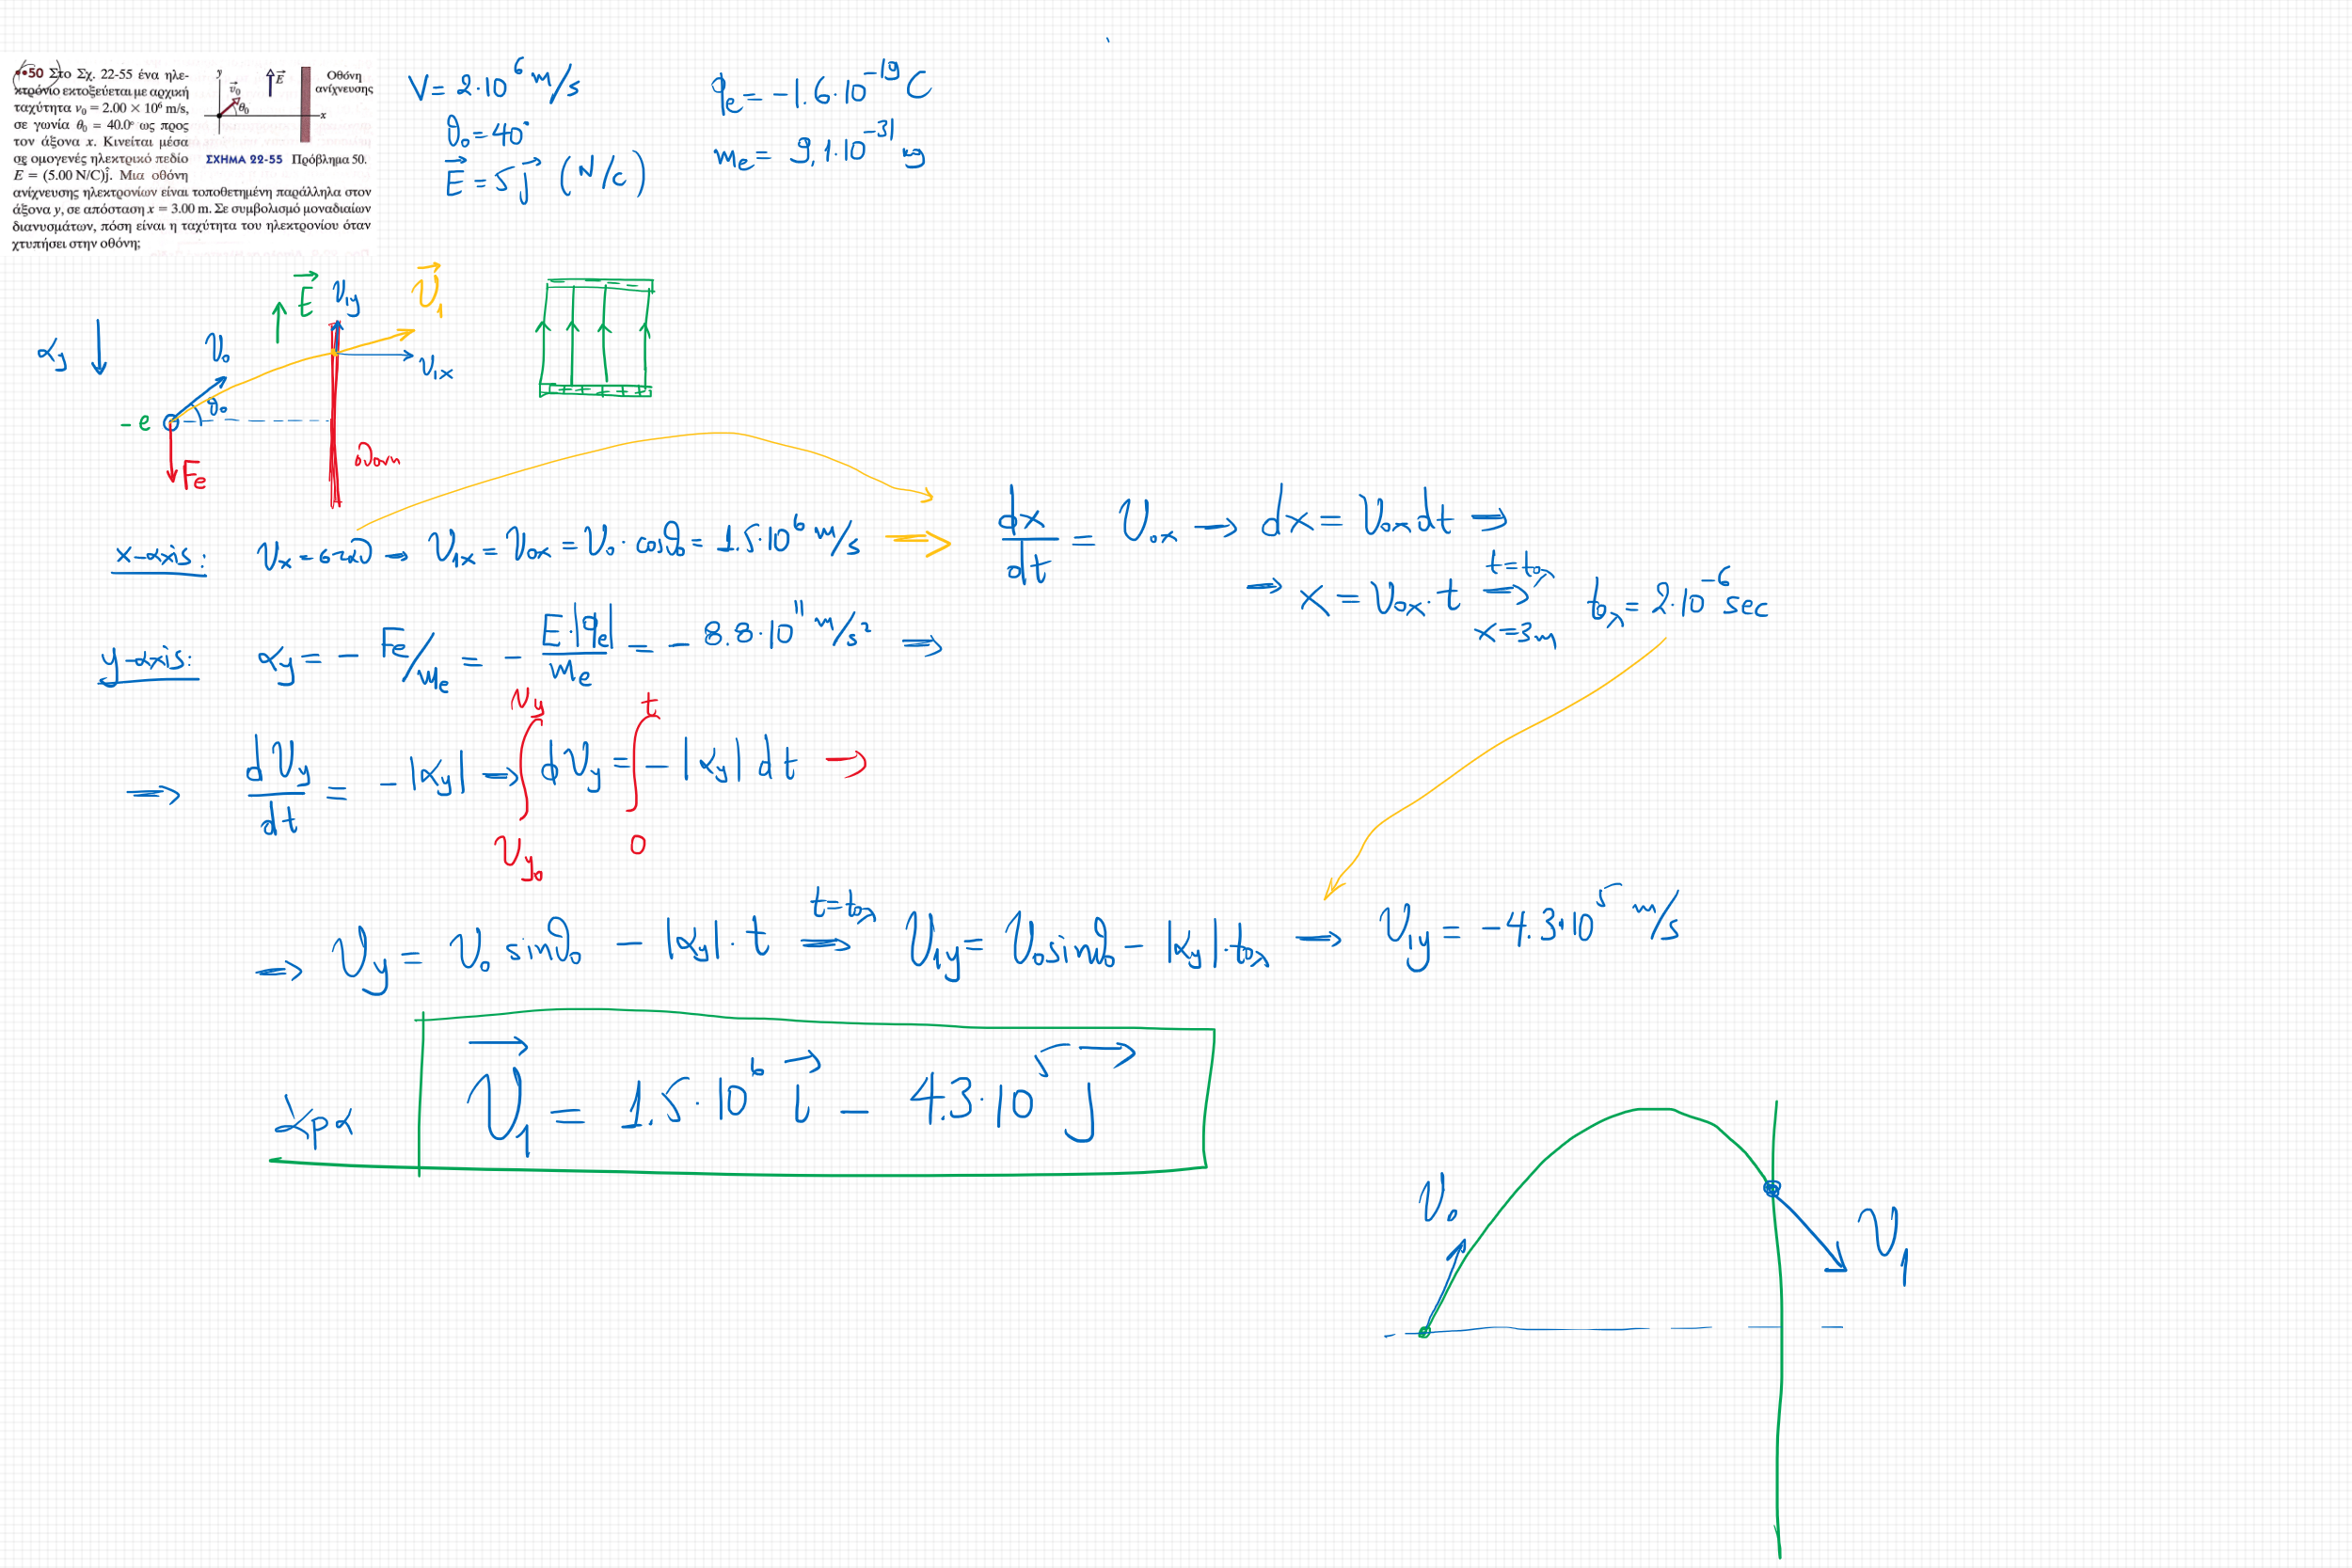 ••50 Στο Σχ. 22-55 ένα ηλε-
κτρόνιο εκτοξεύεται με αρχική
ταχύτητα v₀ = 2.00 × 10⁶ m/s,
σε γωνία θ₀ = 40.0° ως προς
τον άξονα x. Κινείται μέσα
σε ομογενές ηλεκτρικό πεδίο
E = (5.00 N/C)ĵ. Μια οθόνη
ανίχνευσης ηλεκτρονίων είναι τοποθετημένη παράλληλα στον
άξονα y, σε απόσταση x = 3.00 m. Σε συμβολισμό μοναδιαίων
διανυσμάτων, πόση είναι η ταχύτητα του ηλεκτρονίου όταν
χτυπήσει στην οθόνη;
y
v⃗₀
θ₀
E⃗
x
Οθόνη
ανίχνευσης
ΣΧΗΜΑ 22-55 Πρόβλημα 50.
V = 2·10⁶ m/s
θ₀ = 40°
E⃗ = 5 j⃗ (N/C)
qe = -1.6·10⁻¹⁹ C
me = 9,1·10⁻³¹ kg
αy
υ₀
E⃗
υ1y
υ⃗₁
υ1x
θ₀
-e
Fe
οθονη
- - - -
+ + + + +
x-αxis: υx = σταθ → υ1x = υ0x = υ₀·cosθ₀ = 1.5·10⁶ m/s ⇒ dx/dt = υ0x → dx = υ0x dt ⇒
⇒ x = υ0x·t ⇒ (t = tολ, x = 3m) tολ = 2·10⁻⁶ sec
y-αxis: αy = - Fe/me = - E·|qe|/me = - 8.8·10¹¹ m/s² ⇒
⇒ dυy/dt = -|αy| → ∫υy₀^υy dυy = ∫0^t -|αy| dt →
⇒ υy = υ₀ sinθ₀ - |αy|·t ⇒ (t = tολ) υ1y = υ₀sinθ₀ - |αy|·tολ → υ1y = -4.3·10⁵ m/s
άρα υ⃗₁ = 1.5·10⁶ i⃗ - 4.3·10⁵ j⃗
υ₀
υ₁